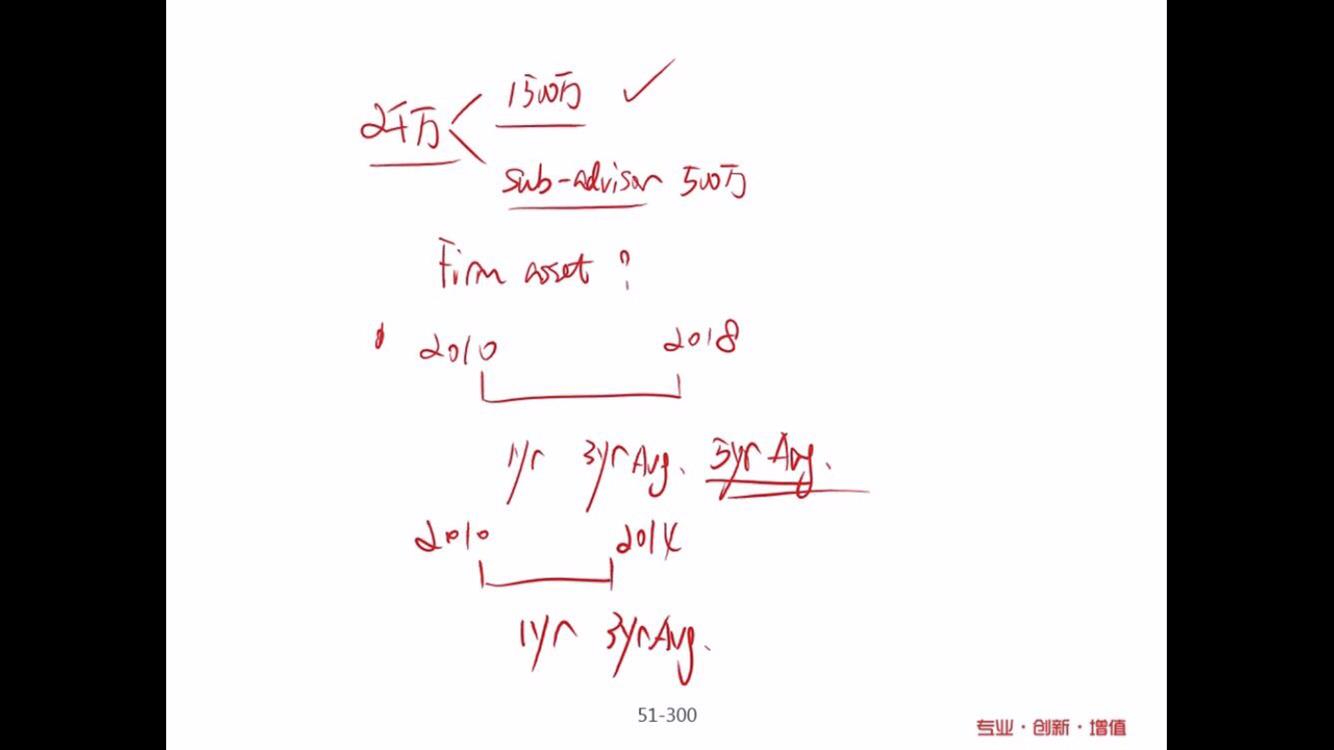 1500万 ✓
2千万
sub-advisor 500万
Firm asset ?
2010 2018
1yr 3yr Avg. 5yr Avg.
2010 2014
1yr 3yr Avg.
51-300
专业·创新·增值